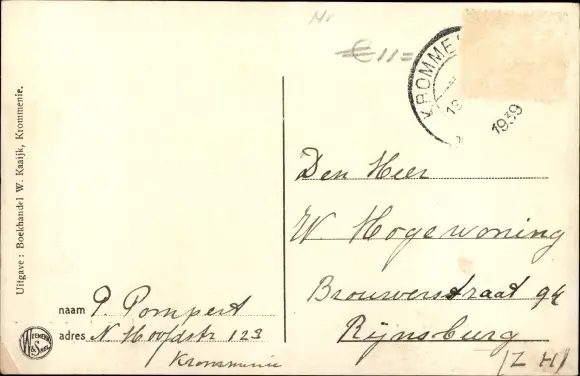 Nr
€ 11=
KROMME
19
1939
Den Heer
W Hogewoning
Brouwerstraat 94
Rijnsburg
(Z H)
naam P. Pompert
adres N. Hoofdstr 123
Krommenie
Uitgave : Boekhandel W. Kaaijk, Krommenie.